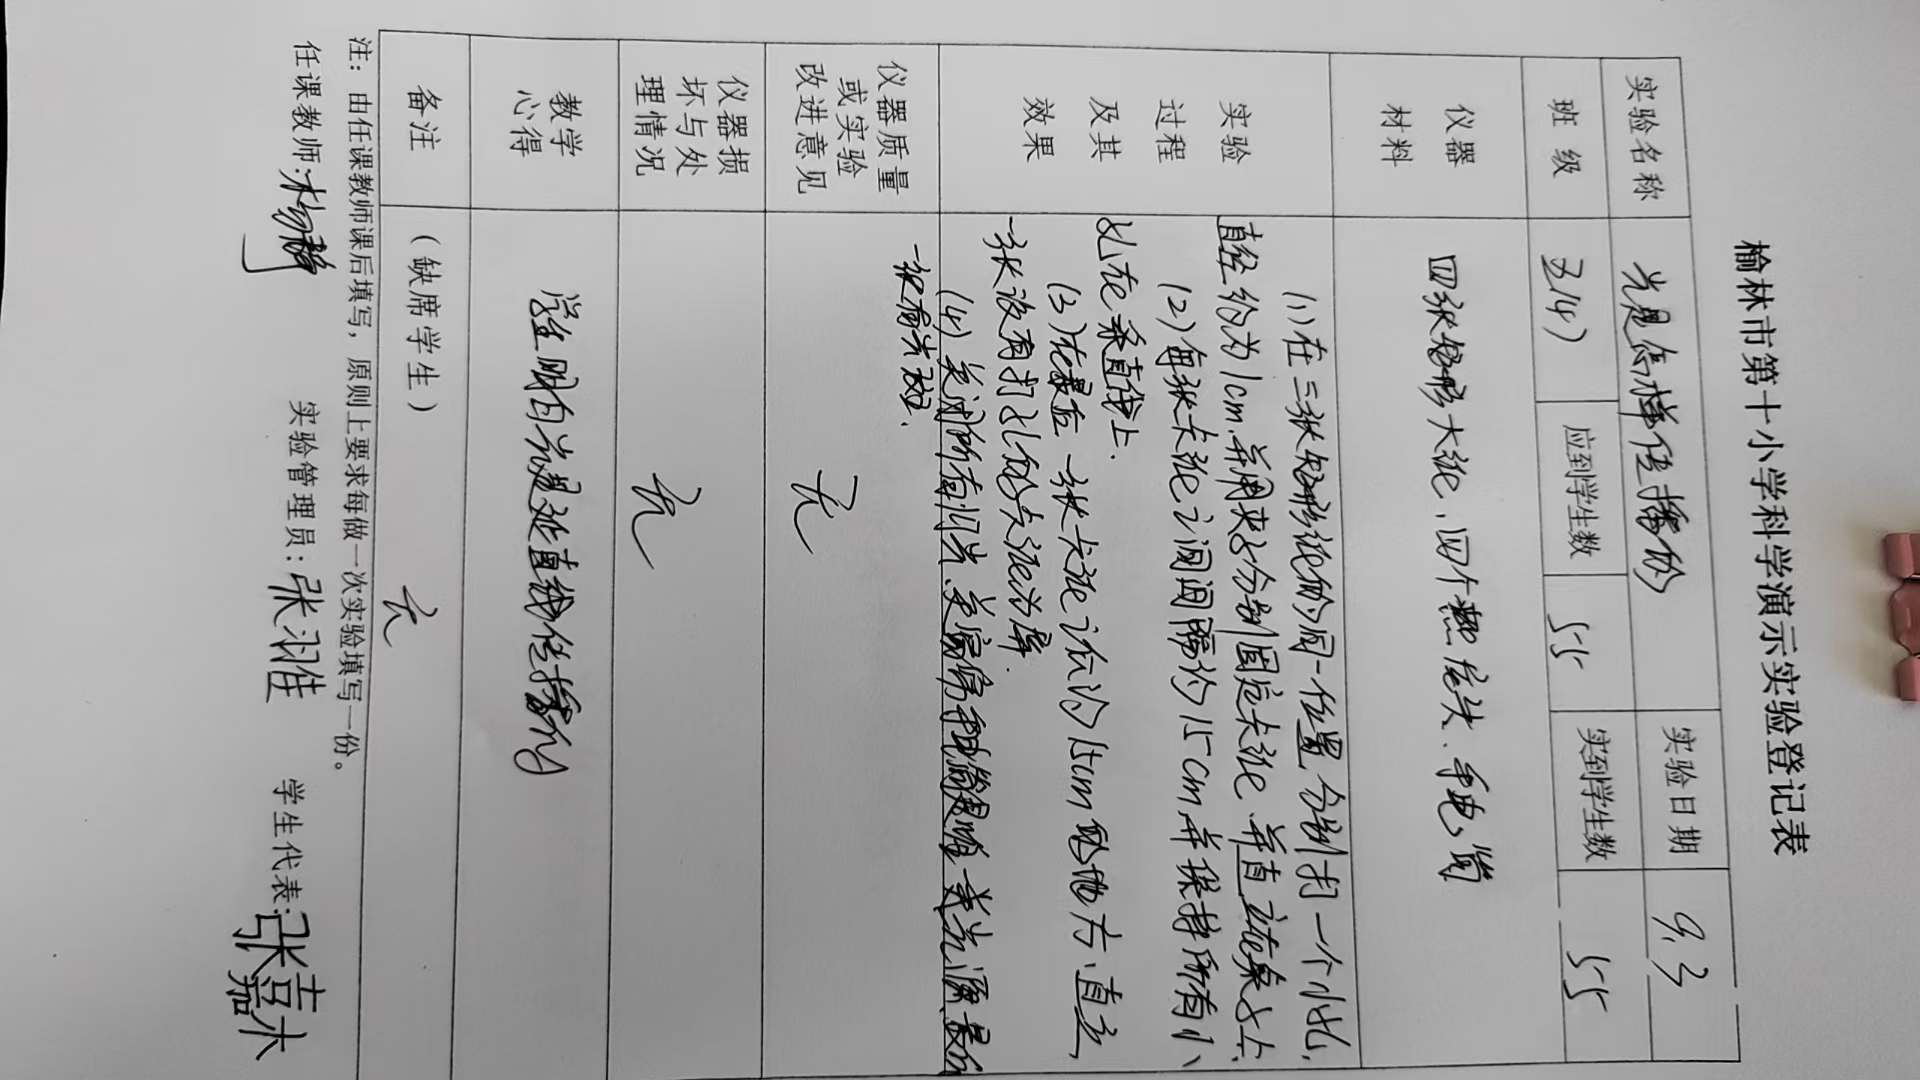 榆林市第十小学科学演示实验登记表
实验名称 光是怎样传播的 实验日期 9.3
班级 五(4) 应到学生数 55 实到学生数 55
仪器 四张矩形大纸、四个燕尾夹、手电筒
材料
(1)在三张矩形纸的同一位置分别打一个小孔,
实验 直径约为1cm.并用夹子分别固定卡纸,并直立在桌子上.
过程 (2)每张卡纸之间间隔约15cm,并保持所有小
及其 孔在条直线上.
(3)在最后一张卡纸该约15cm的地方,直立
效果 一张没有打孔的卡纸为屏.
(4)关闭所有灯光,关窗帘,手电筒
一张有光斑.
仪器质量
或实验 无
改进意见
仪器损
坏与处 无
理情况
教学 学生明白光是延直线传播的
心得
备注 (缺席学生)
无
注:由任课教师课后填写,原则上要求每做一次实验填写一份。
任课教师: 杨静 实验管理员: 张 学生代表: 张嘉